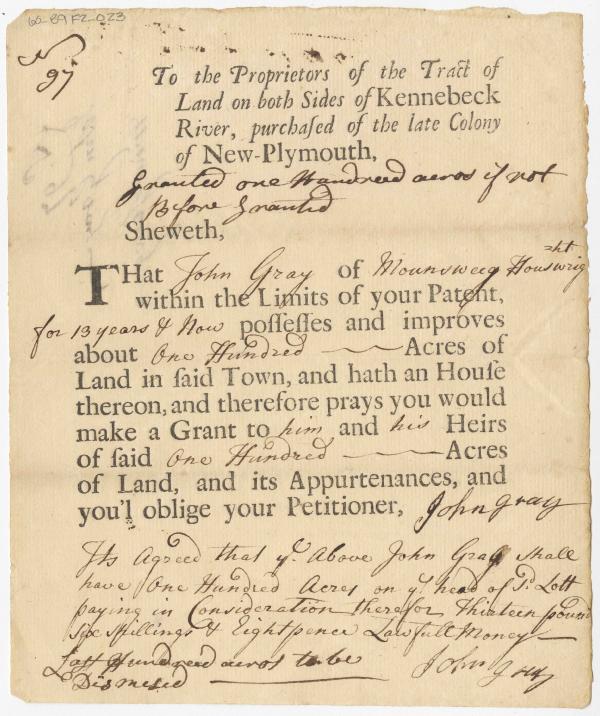 60-89 F2-023
97
To the Proprietors of the Tract of
Land on both Sides of Kennebeck
River, purchaſed of the late Colony
of New-Plymouth,
Granted one Hundreed acros if not
Before Granted
Sheweth,
THat John Gray of Mounsweeg Houswright
within the Limits of your Patent,
for 13 years & Now poſſeſſes and improves
about One Hundred Acres of
Land in ſaid Town, and hath an Houſe
thereon, and therefore prays you would
make a Grant to him and his Heirs
of ſaid One Hundred Acres
of Land, and its Appurtenances, and
you'l oblige your Petitioner, John gray
Its Agreed that yᵉ Above John Gray shall
have One Hundred Acres on yᵉ head of Lott
paying in Consideration therefor Thirteen pound
Six Shillings & Eightpence Lawfull Money
Last Hundreed acros to be John gray
Dismesed